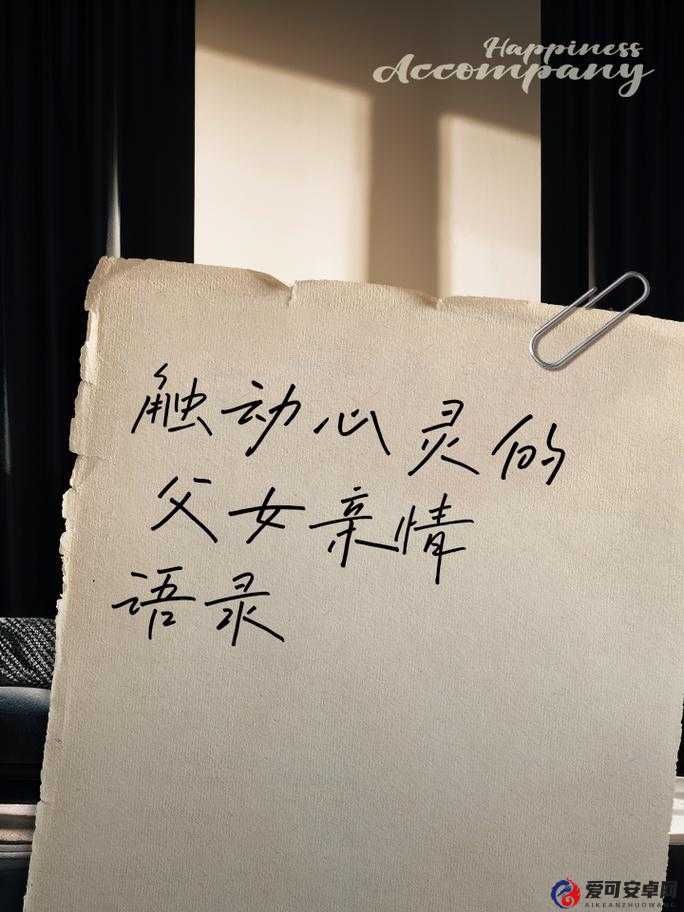 Happiness
Accompany
触动心灵的
父女亲情
语录
爱可安卓网
AIKEANZHUOWANG